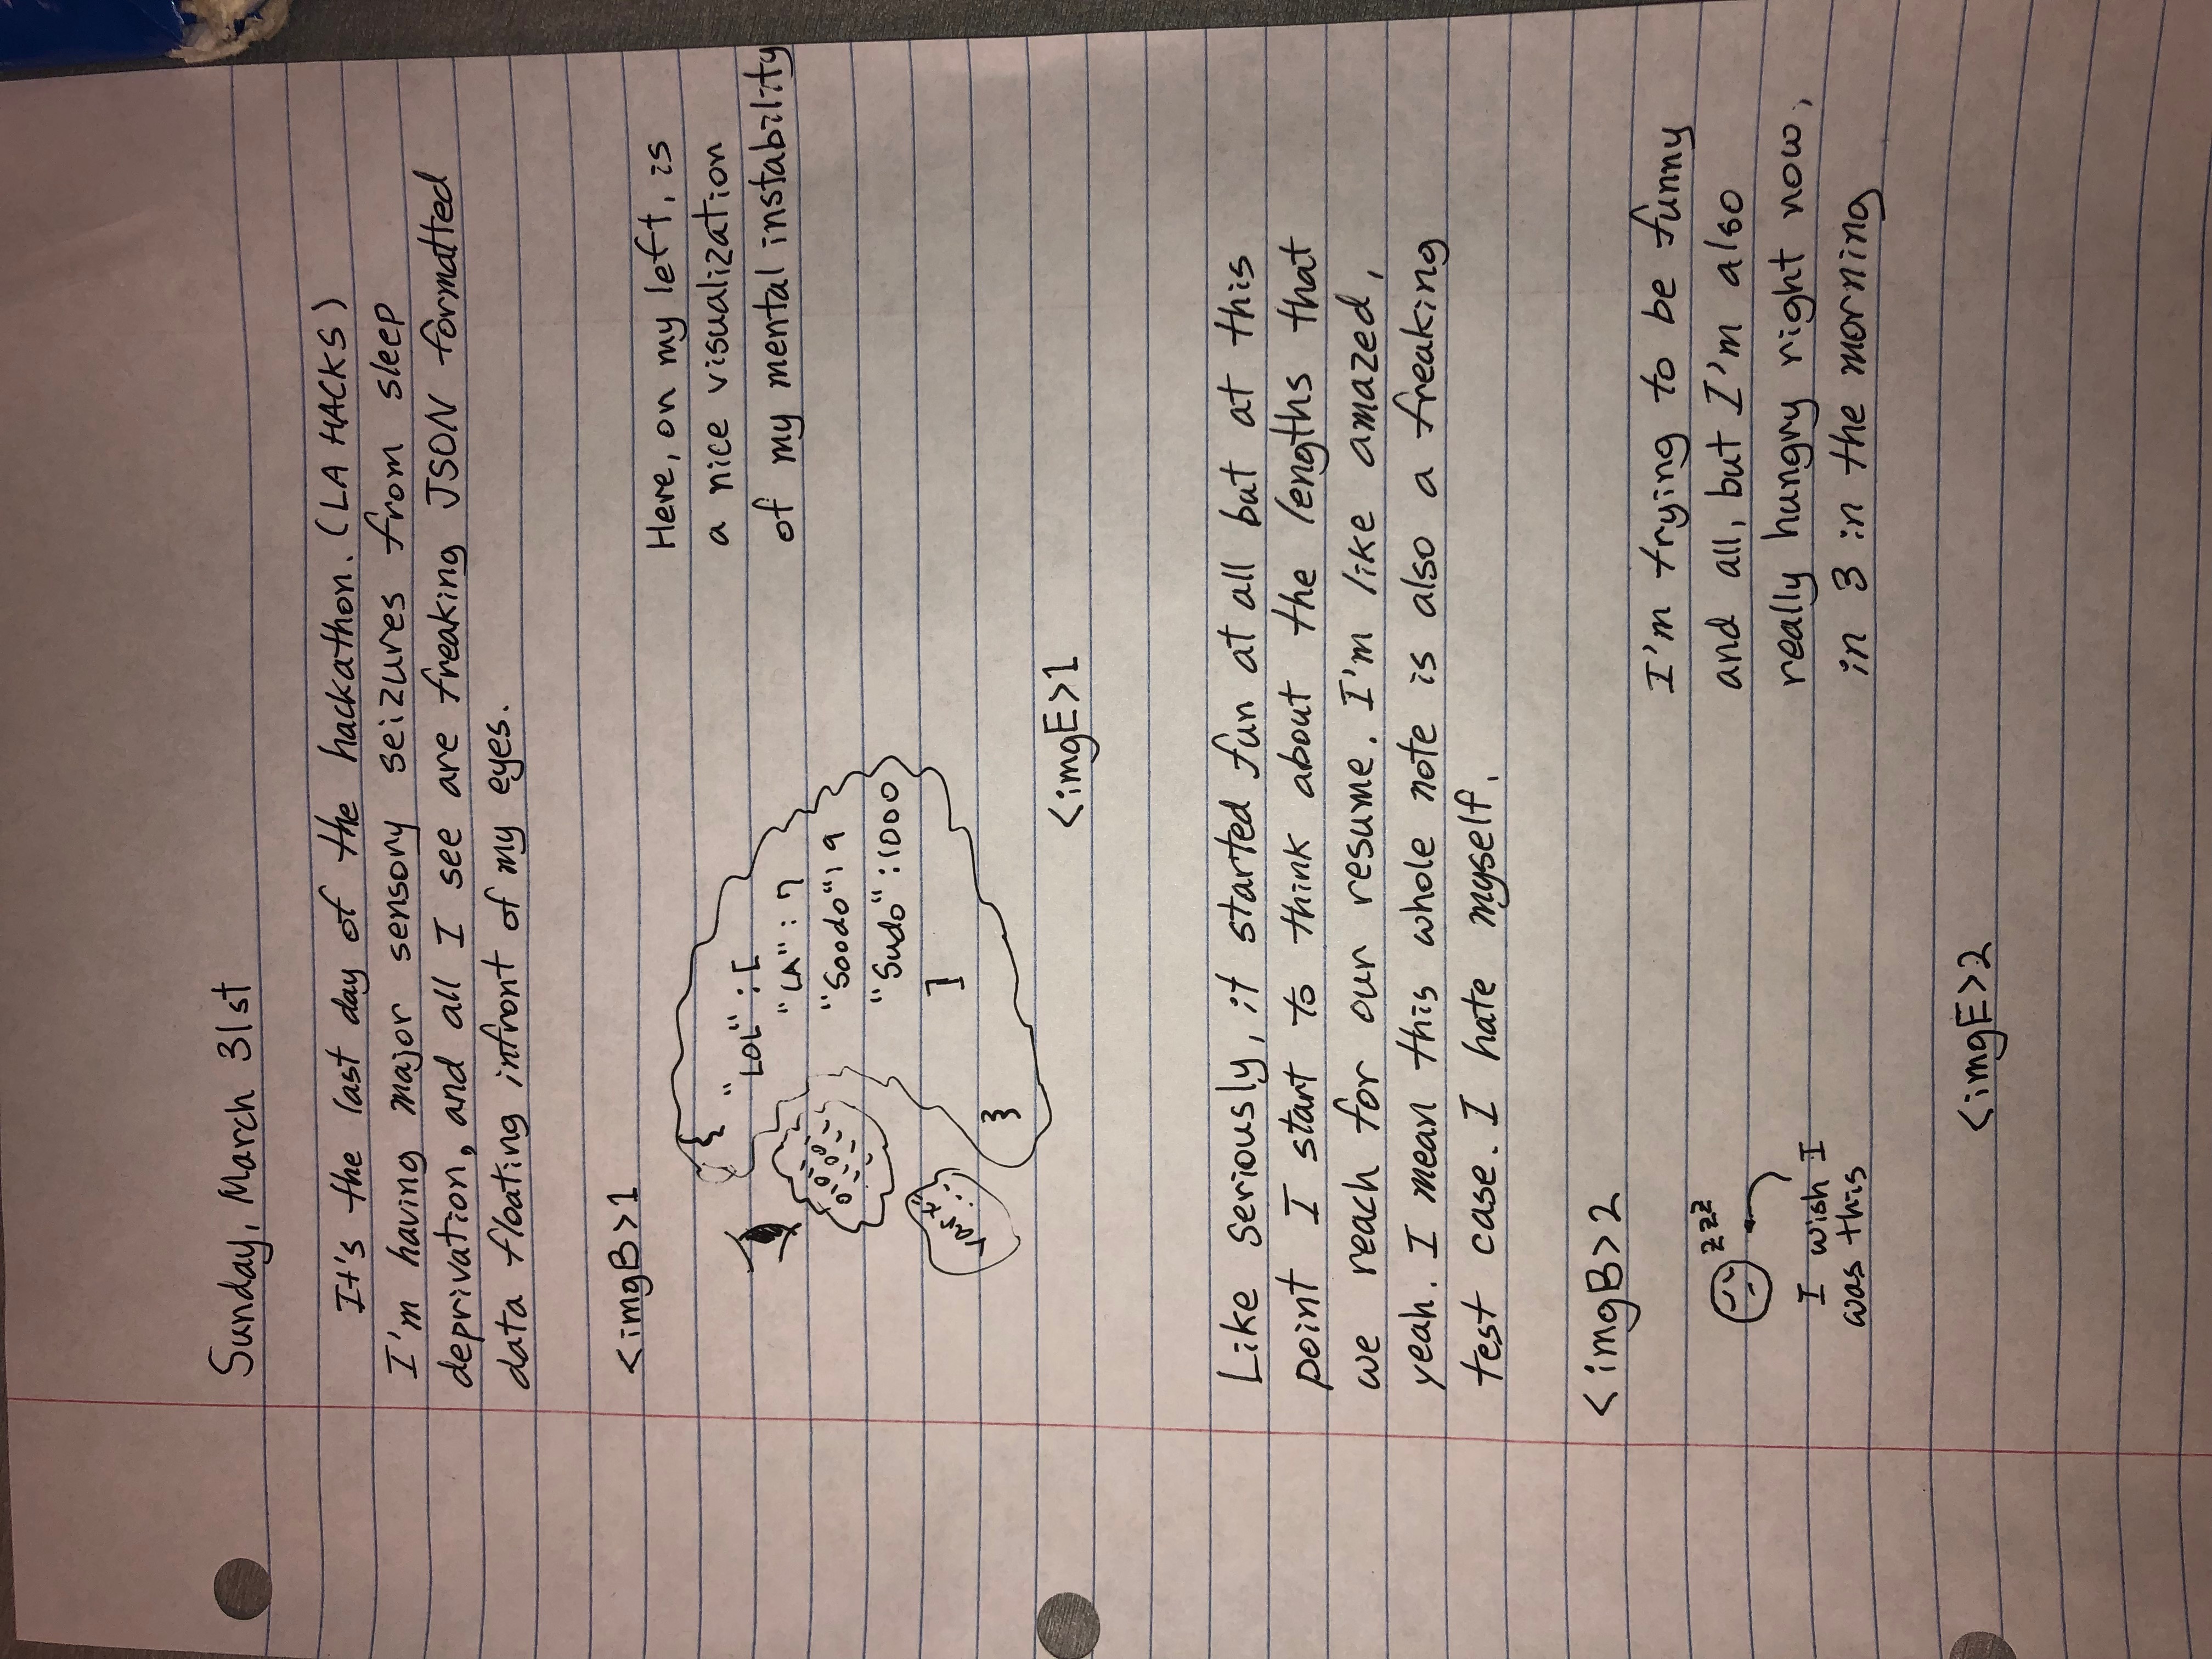 Sunday, March 31st
It's the last day of the hackathon. (LA HACKS)
I'm having major sensory seizures from sleep
deprivation, and all I see are freaking JSON formatted
data floating infront of my eyes.
<imgB>1
Here, on my left, is
a nice visualization
of my mental instability
{
"LOL": [
"LA": 7
"Soodo": 9
"Sudo": 1000
]
}
<imgE>1
Like seriously, it started fun at all but at this
point I start to think about the lengths that
we reach for our resume. I'm like amazed,
yeah. I mean this whole note is also a freaking
test case. I hate myself.
<imgB>2
I'm trying to be funny
and all, but I'm also
really hungry right now,
in 3 in the morning
zzz
I wish I
was this
<imgE>2